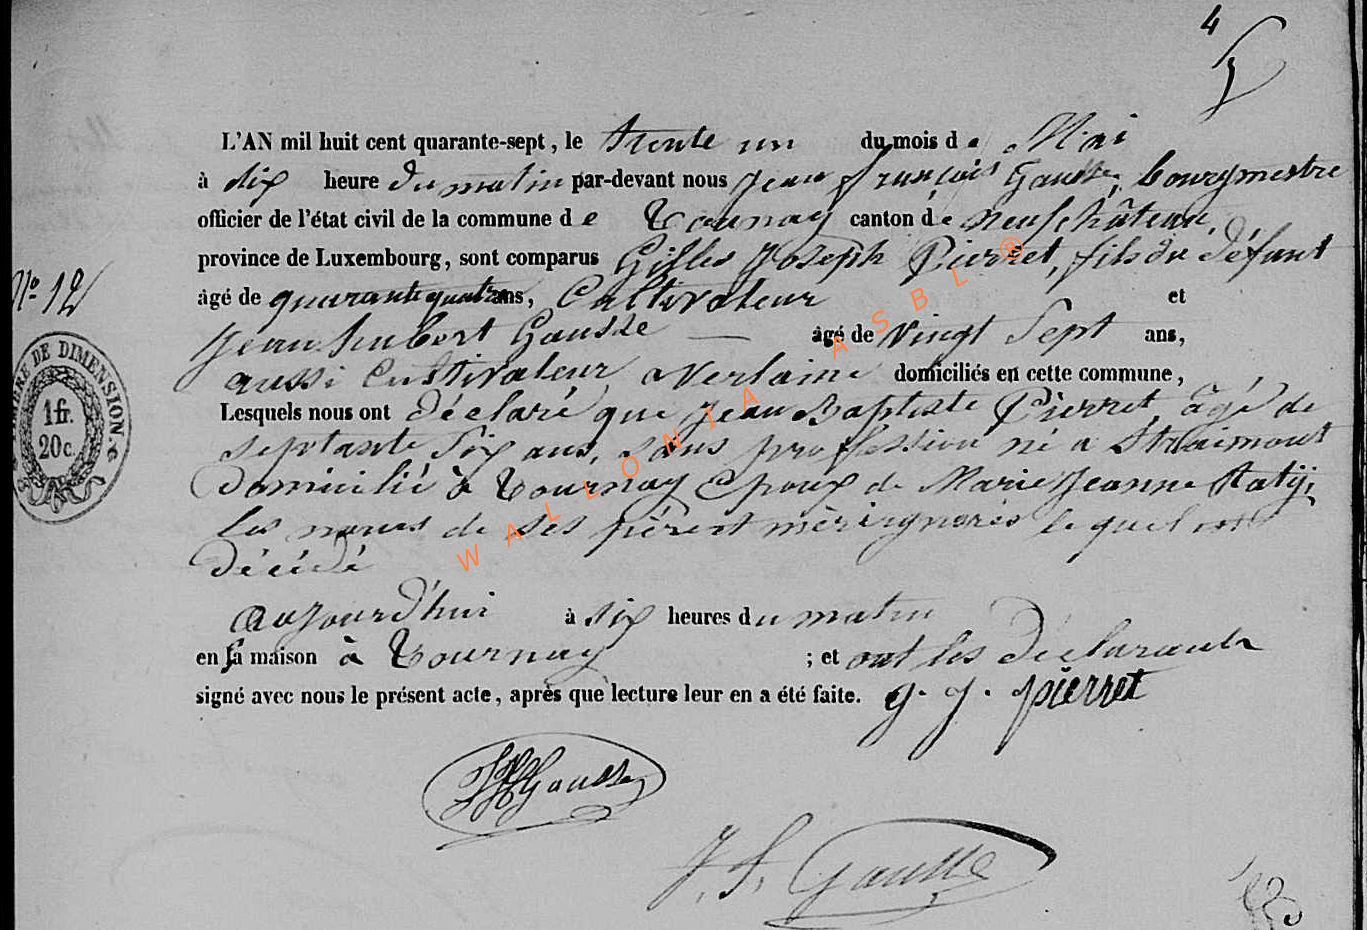 4
L'AN mil huit cent quarante-sept, le trente un du mois de Mai
à dix heure du matin par-devant nous Jean françois Gausse, bourgmestre
officier de l'état civil de la commune de Tournay canton de neufchâteau,
province de Luxembourg, sont comparus Gilles Joseph Pierret, fils du défunt
N° 12
âgé de quarante quatre ans, Cultivateur et
Jean hubert Gausse âgé de Vingt Sept ans,
aussi Cultivateur a Verlaine domiciliés en cette commune,
Lesquels nous ont déclaré que Jean Baptiste Pierret, âgé de
septante six ans, sans profession né a Straimont
Domicilié à Tournay Epoux de Marie Jeanne
les noms de ses père et mère ignorés lequel est
Décédé
aujourd'hui à six heures du matin
en sa maison à Tournay ; et ont les déclarants
signé avec nous le présent acte, après que lecture leur en a été faite. g. j. pierret
TIMBRE DE DIMENSION.
1 fr.
20 c.
WALLONIA ASBL ®
JH Gausse
J. F. Gausse